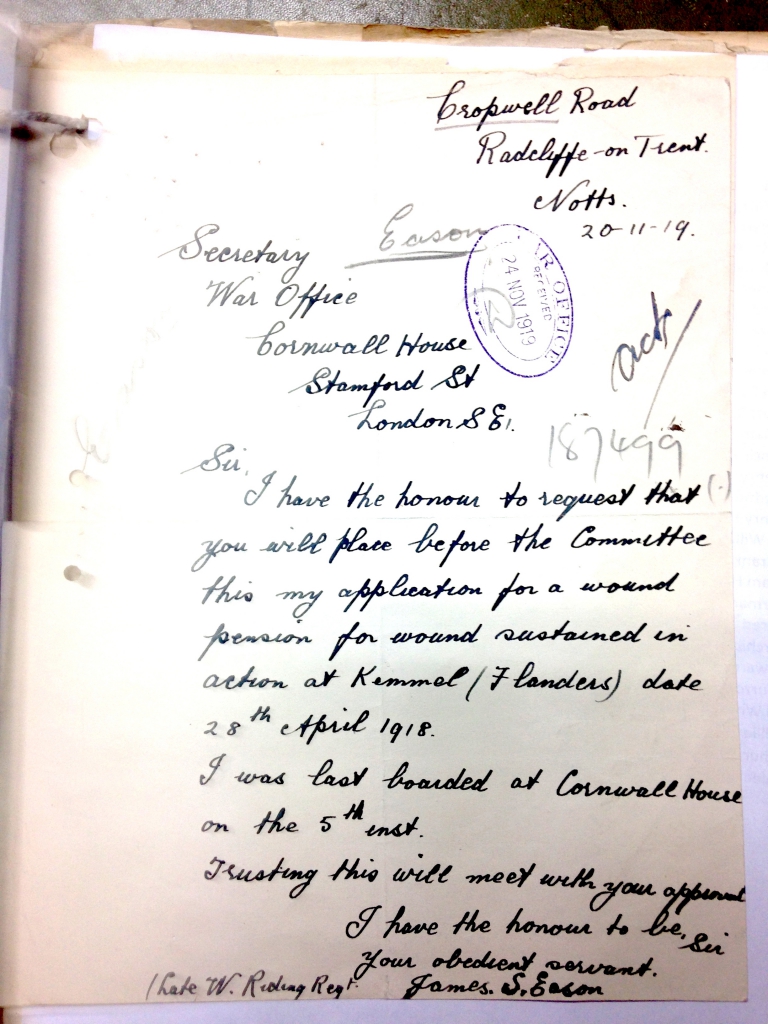 Cropwell Road
Radcliffe-on Trent.
Notts.
20-11-19.
Eason
Secretary
War Office
Cornwall House
Stamford St
London S E1.
WAR OFFICE
RECEIVED
24 NOV 1919
187499
Sir,
I have the honour to request that (.)
you will place before the Committee
this my application for a wound
pension for wound sustained in
action at Kemmel (Flanders) date
28th April 1918.
I was last boarded at Cornwall House
on the 5th inst.
Trusting this will meet with your approval
I have the honour to be, Sir
Your obedient servant.
James. S. Eason
(Late W. Riding Regt.